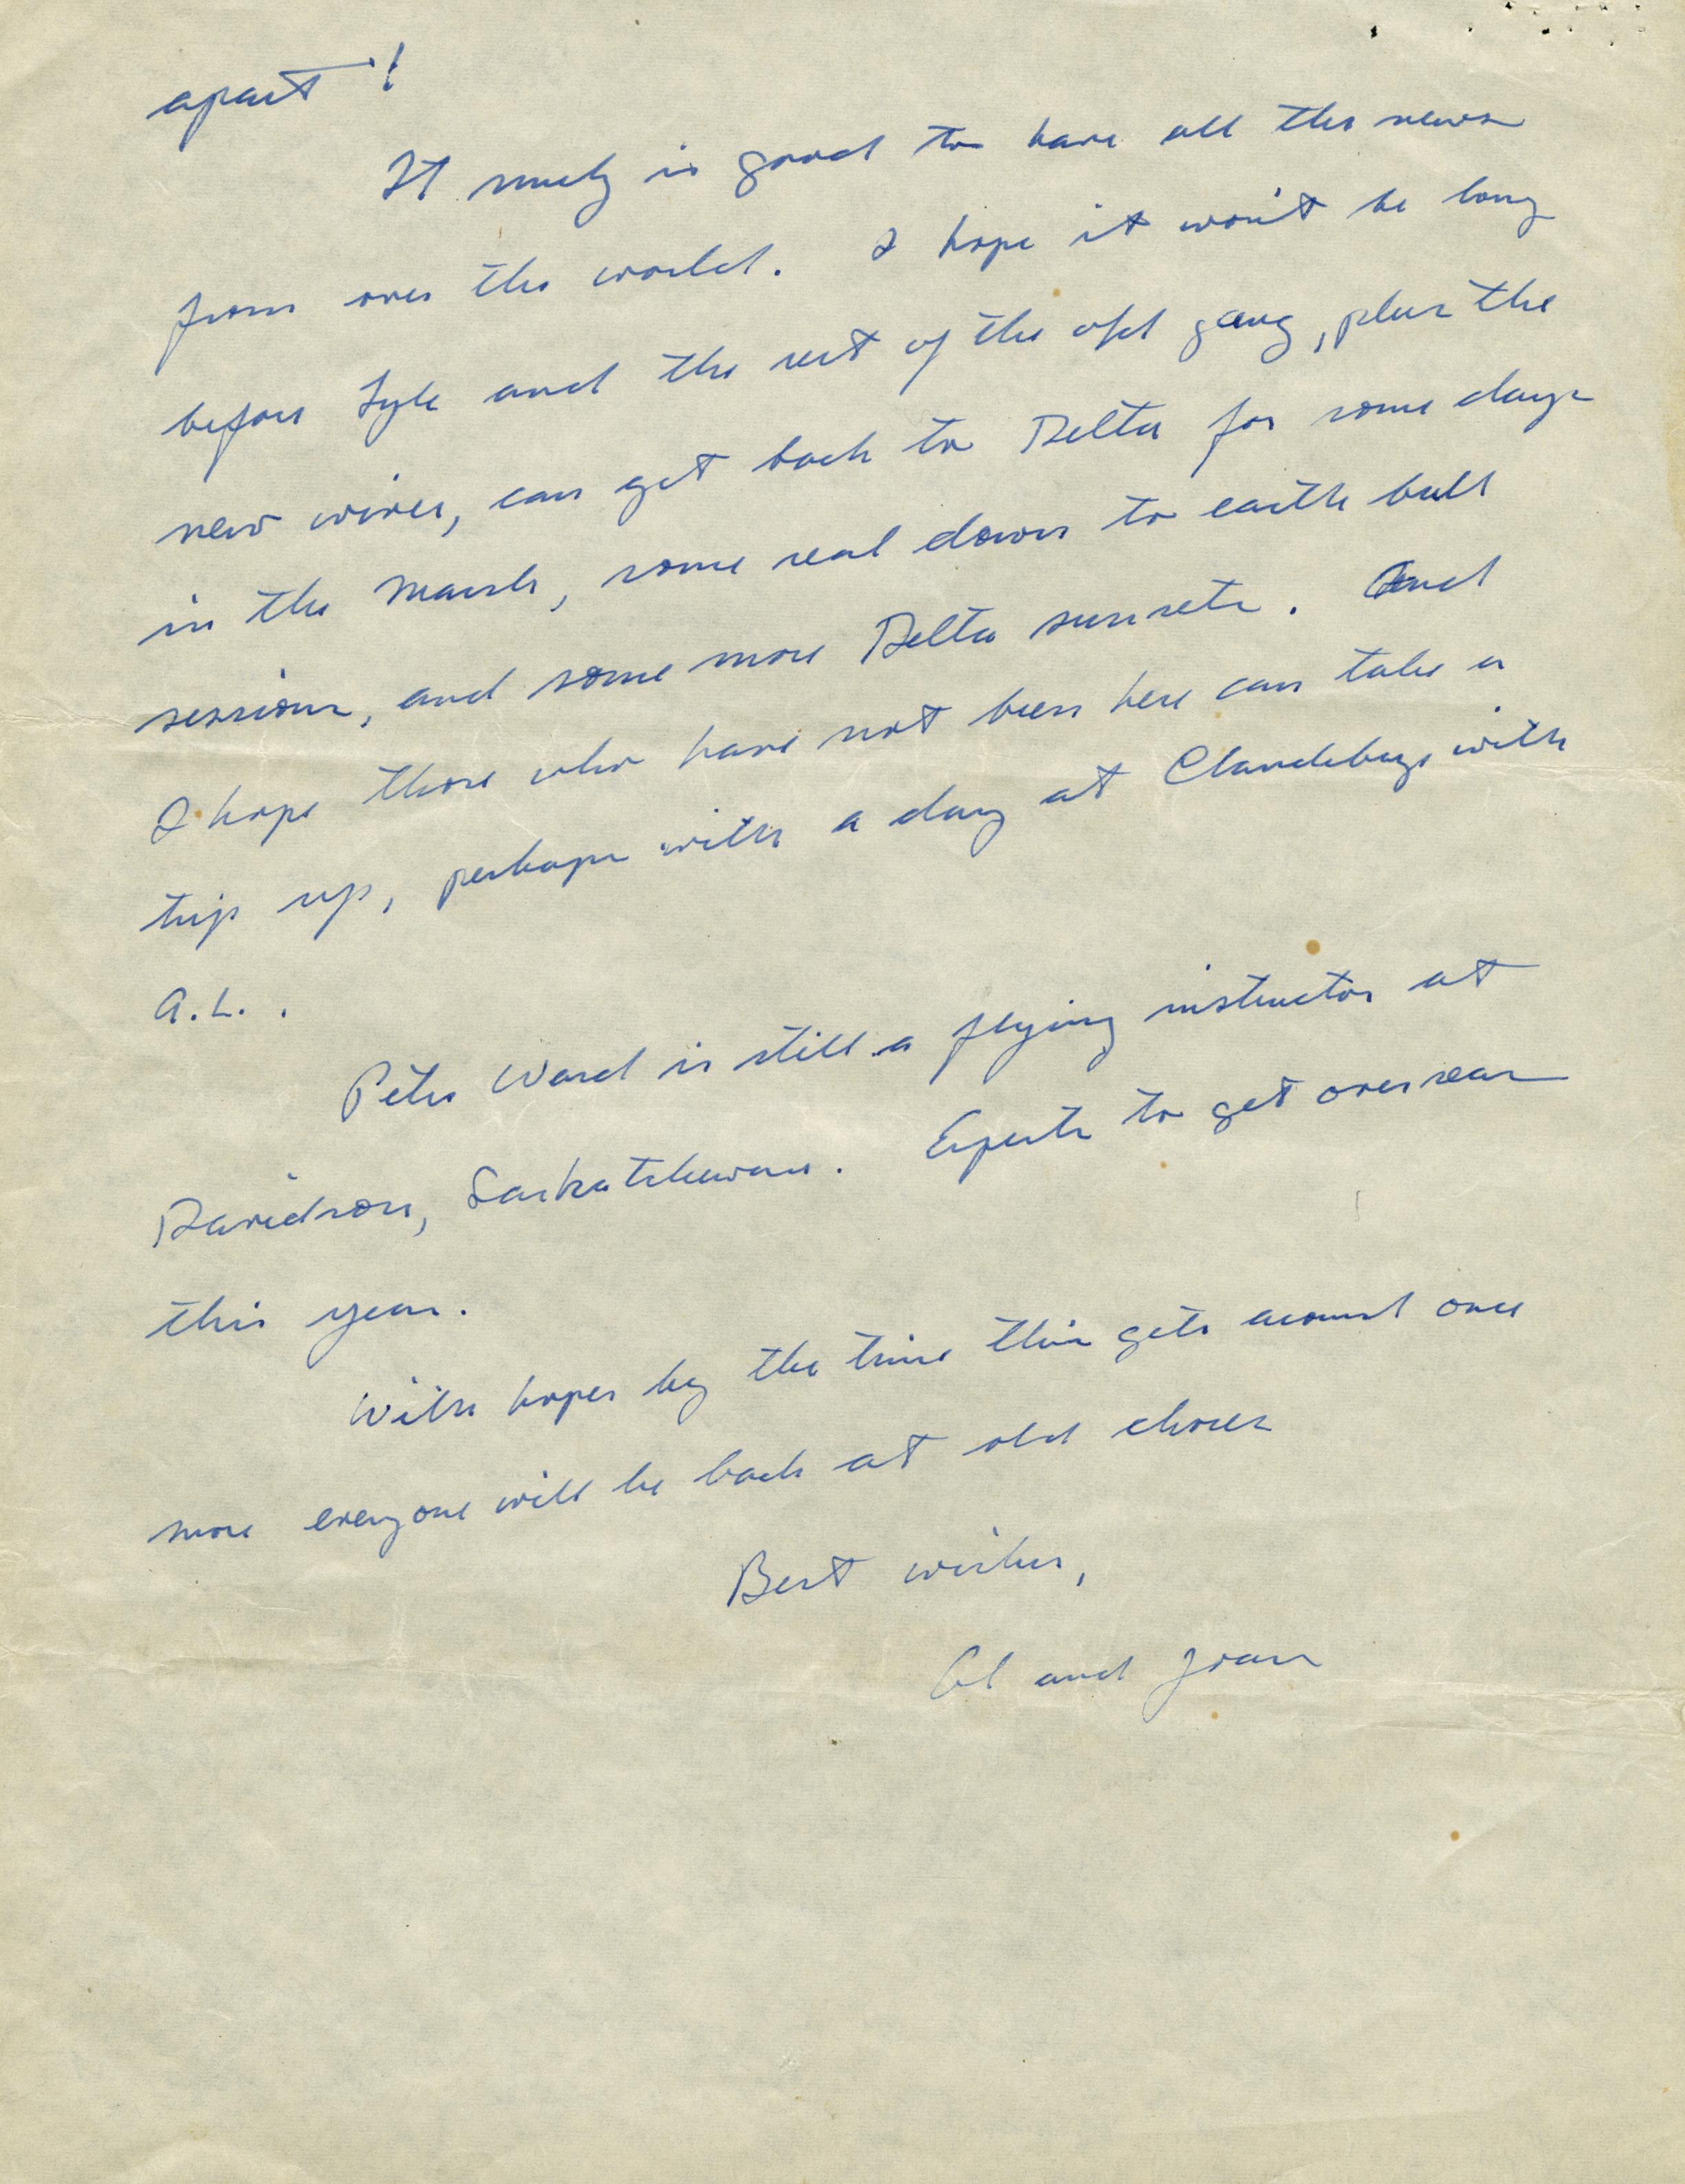 apart!
It surely is good to have all the news
from over the world. I hope it won't be long
before Lyle and the rest of the old gang, plus the
new wives, can get back to Delta for some days
in the Marsh, some real down to earth bull
sessions, and some more Delta sunsets. And
I hope those who have not been here can take a
trip up, perhaps with a day at Clandeboye with
A.L..
Peter Ward is still a flying instructor at
Davidson, Saskatchewan. Expects to get overseas
this year.
With hopes by the time this gets around once
more everyone will be back at old chores
Best wishes,
Al and Joan